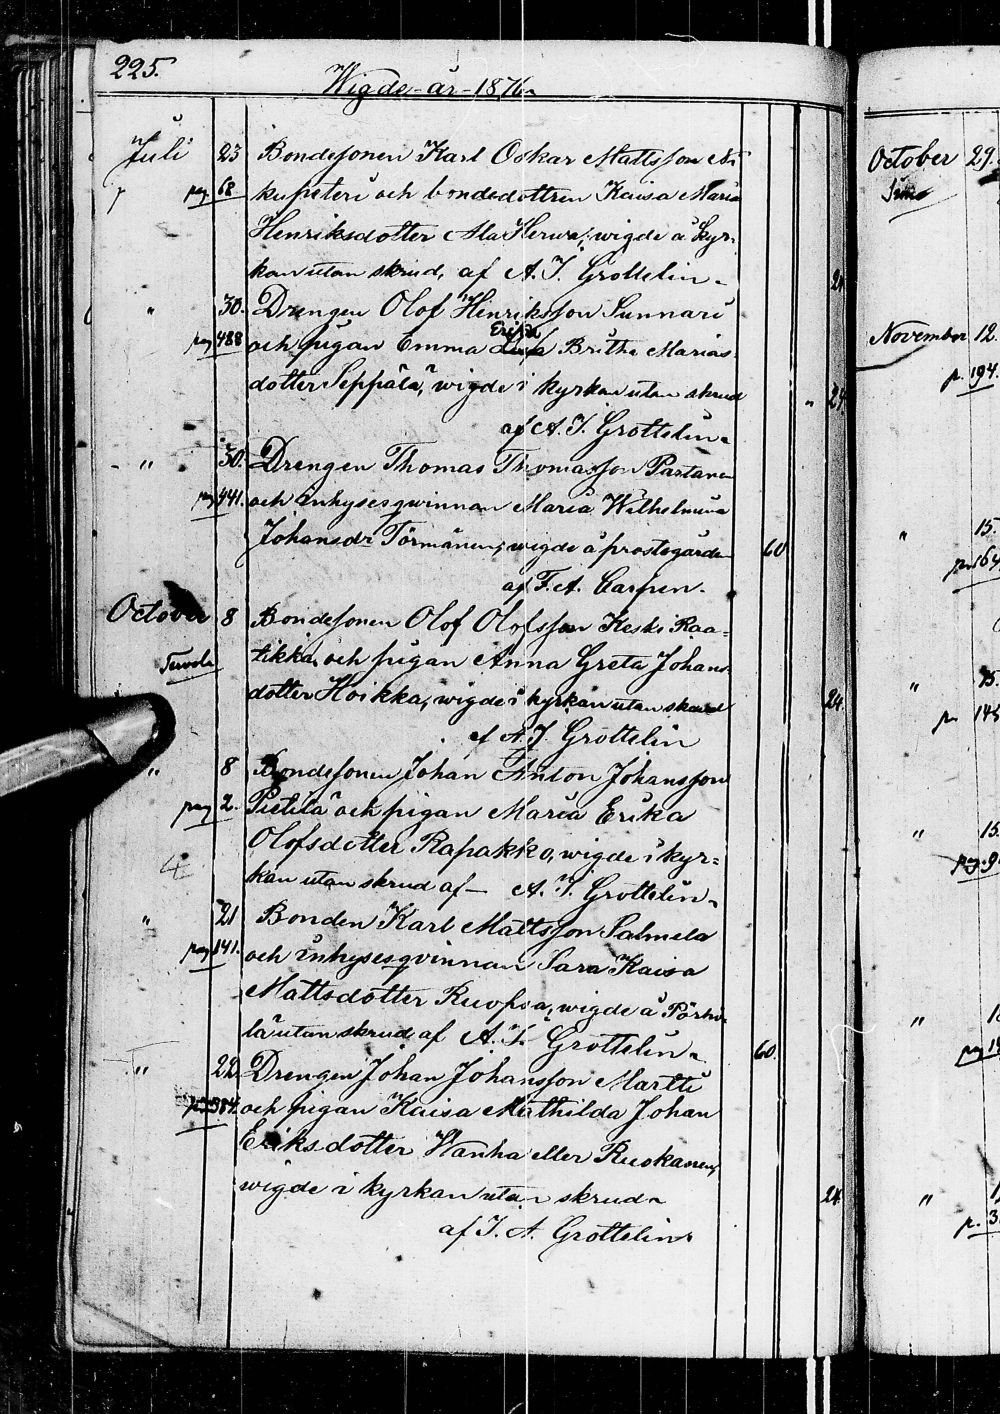 225.
Wigde - år - 1876
Juli 23 Bondesonen Karl Oskar Mattsson
pag 68 och bondedottren Kaisa Maria
Henriksdotter Ala Herwa, wigde å kyr-
kan utan skrud, af A. I. Grottelin
" 30. Drengen Olof Hinriksson Sunnari
pag 488 och pigan Emma Erika Britha Marias
dotter Seppälä, wigde i kyrkan utan skrud " 24
af A. I. Grottelin
" 30. Drengen Thomas Thomasson Partanen
pag 441. och inhysesqwinnan Maria Wilhelmina
Johansdr Törmänen, wigde å prostegården 60
af F. A. Carpen.
October 8 Bondesonen Olof Olofsson Keski Raa-
Tervola tikka, och pigan Anna Greta Johans
dotter Hoikka, wigde i kyrkan utan skrud 24.
af A. I. Grottelin
" 8 Bondesonen Johan Anton Johansson
pag 2. Pietilä och pigan Maria Erika
Olofsdotter Rapakko, wigde i kyr=
kan utan skrud af — A. I. Grottelin
" 21 Bonden Karl Mattsson Salmela
pag 141. och inhysesqvinnan Sara Kaisa
Mattsdotter Ruopsa, wigde å
utan skrud af A. I. Grottelin 60.
" 22 Drengen Johan Johansson Martti
384. och pigan Kaisa Mathilda Johan
Eriksdotter Wanha eller Ruokanen,
wigde i kyrkan utan skrud 24.
af I. A. Grottelin
October 29.
Simo
November 12.
p. 194.
" 15.
" 15.
p. 145
" 15.
"
"